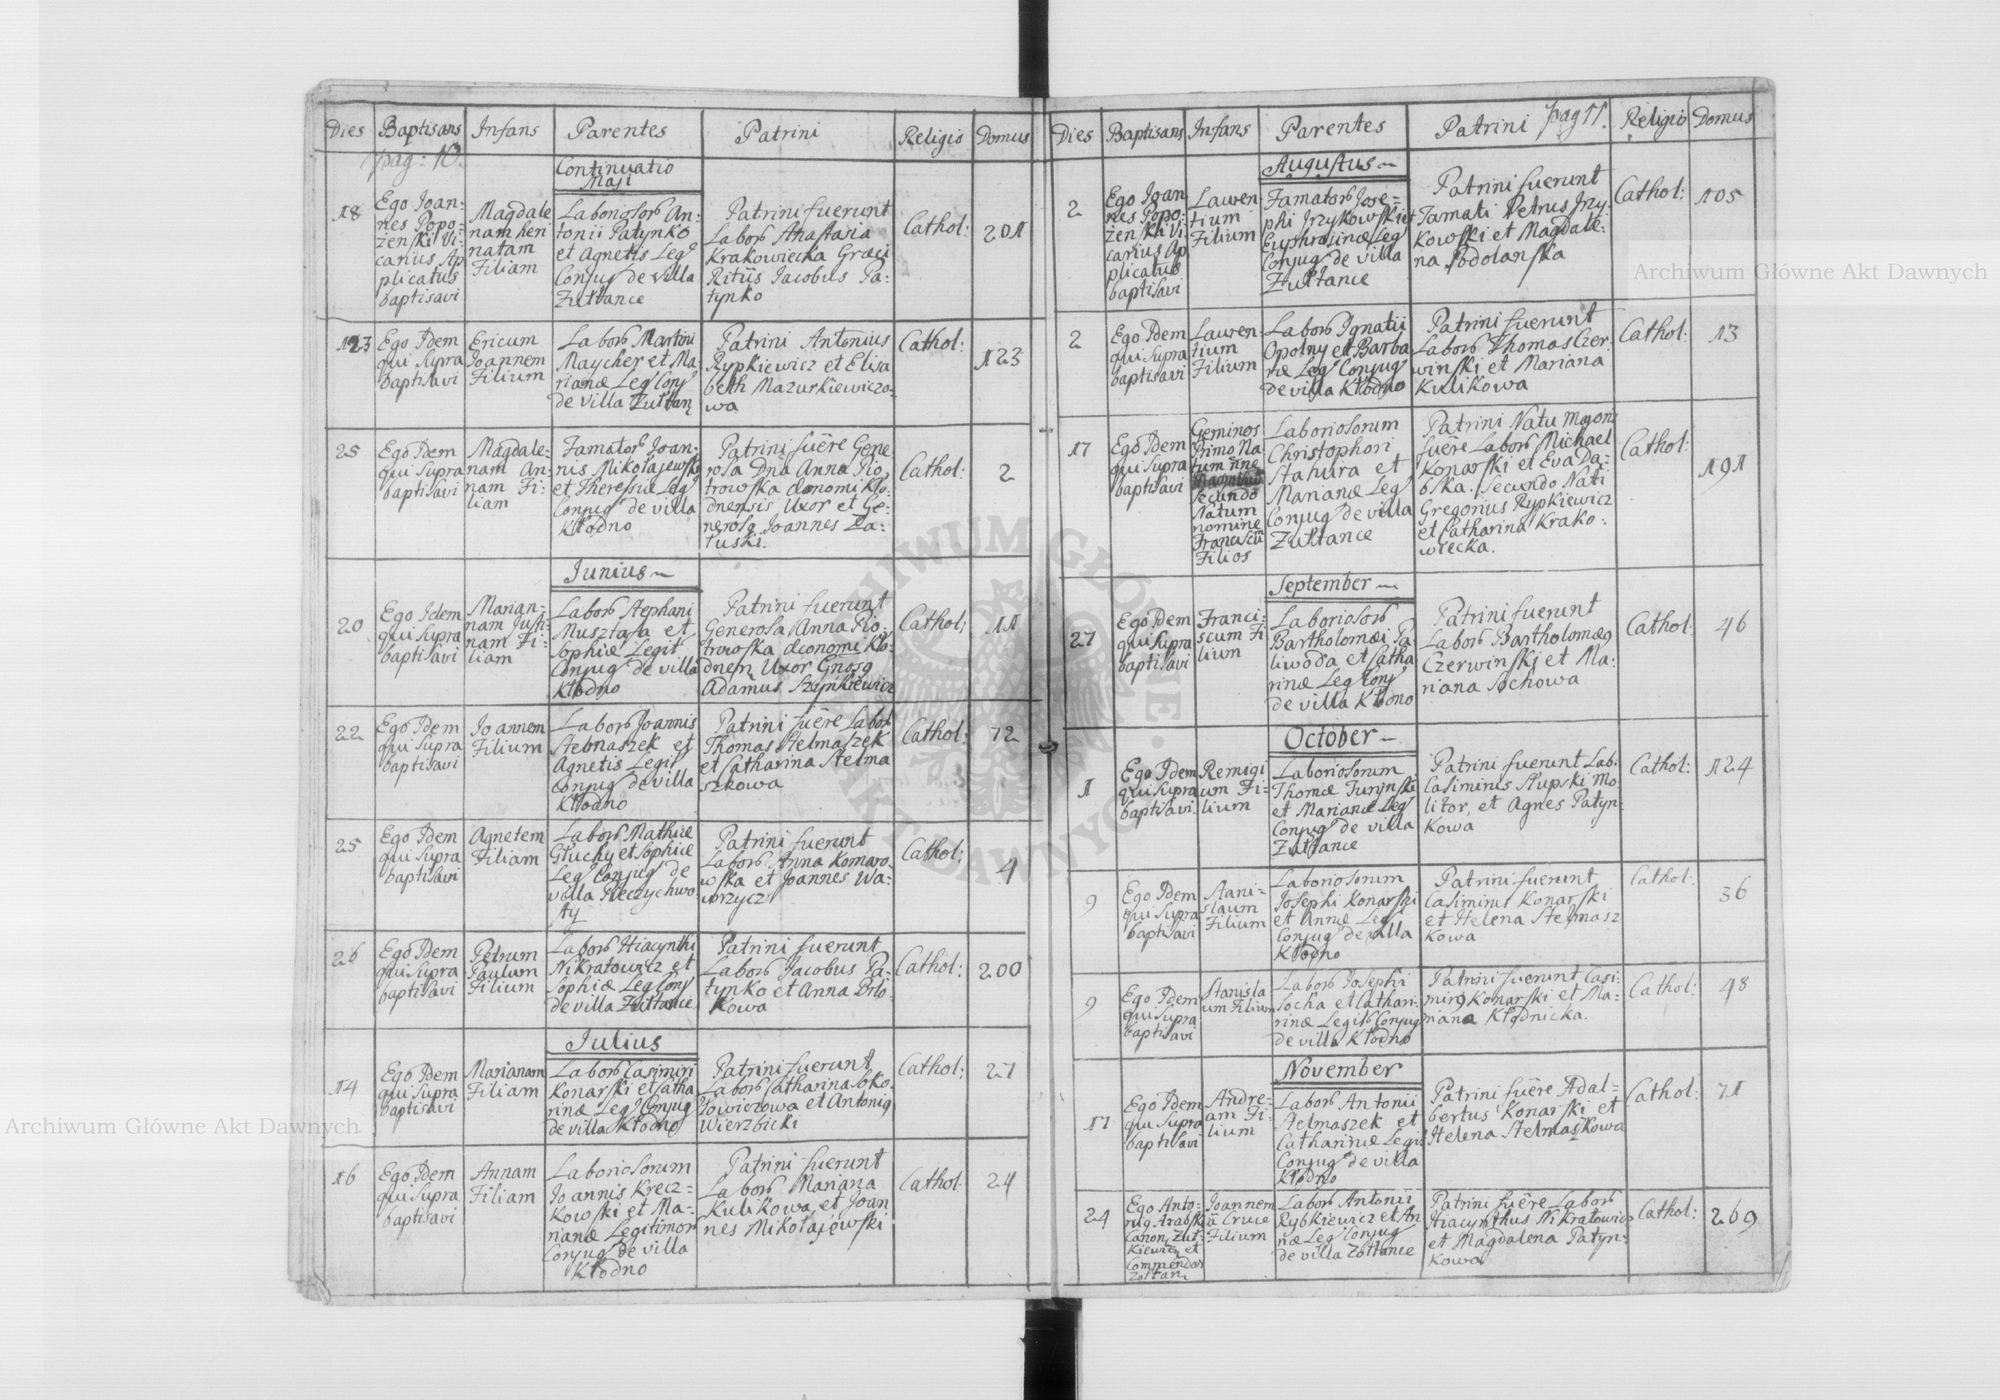 Dies Baptisans Infans Parentes Patrini Religio Domus
pag: 10.
Continuatio
Maji
18
Ego Joan-
nes Popo-
żenski Vi-
carius Ap
plicatus
baptisavi
Magdale
nam heri
natam
Filiam
Laboriosor An-
tonii Patynko
et Agnetis Leg
Conjug de villa
Żułtance
Patrini fuerunt
Labor Anastasia
Krakowiecka Graeci
Ritus Jacobus Pa-
tynko
Cathol:
201
123
Ego Idem
qui Supra
baptisavi
Ericum
Joannem
Filium
Labor Martini
Maycher et Ma-
rianæ Leg Conj
de villa Żułtan
Patrini Antonius
Rypkiewicz et Elisa
beth Mazurkiewiczo-
wa
Cathol:
123
25
Ego Idem
qui Supra
baptisavi
Magdale-
nam An-
nam Fi-
liam
Famator Joan-
nis Mikołajewski
et Theresiæ Leg
Conjug de villa
Kłodno
Patrini fuêre Gene
rosa Dna Anna Pio
trowska œconomi Kło-
dnensis Uxor et Ge-
nerosq Joannes Za-
łuski.
Cathol:
2
Junius
20
Ego Idem
qui Supra
baptisavi
Marian-
nam Justi-
nam Fi-
liam
Labor Stephani
Musztafa et
Sophiæ Legit
Conjug de villa
Kłodno
Patrini fuerunt
Generosa Anna Pio-
trowska œconomi Kło-
dnem Uxor Gnosq
Adamus Szynkiewicz
Cathol;
11
22
Ego Idem
qui Supra
baptisavi
Joannem
Filium
Labor Joannis
Stelmaszek et
Agnetis Legit
Conjug de villa
Kłodno
Patrini fuêre Labor
Thomas Stelmaszek
et Catharina Stelma
szkowa
Cathol:
72
25
Ego Idem
qui Supra
baptisavi
Agnetem
Filiam
Labor Mathiæ
Głuchy et Sophiæ
Leg Conjug de
villa Pieczychwo-
sty
Patrini fuerunt
Labor Anna Komaro
wska et Joannes Wa-
wrzycz
Cathol;
4
26
Ego Idem
qui Supra
baptisavi
Petrum
Paulum
Filium
Labor Hiacynthi
Nikratowicz et
Sophiæ Leg Conj
de villa Żułtance
Patrini fuerunt
Labor Jacobus Pa-
tynko et Anna Orło
kowa
Cathol:
200
Julius
14
Ego Idem
qui Supra
baptisavi
Marianam
Filiam
Labor Casimiri
Konarski et Catha
rinæ Leg Conjug
de villa Kłodno
Patrini fuerunt
Labor Catharina Soko-
łowiczowa et Antoniq
Wierzbicki
Cathol;
27
16
Ego Idem
qui Supra
baptisavi
Annam
Filiam
Laboriosorum
Joannis Krecz-
kowski et Ma-
rianæ Legitimor
Conjug de villa
Kłodno
Patrini fuerunt
Labor Marianna
Kulikowa et Joan
nes Mikołajewski
Cathol:
24
Dies Baptisans Infans Parentes Patrini pag 11. Religio Domus
Augustus
2
Ego Joan
nes Popo-
żenski Vi
carius Ap
plicatus
baptisavi
Lauren-
tium
Filium
Famator Jose-
phi Jrzykowski et
Euphrosinæ Leg
Conjug de villa
Żułtance
Patrini fuerunt
Famati Petrus Jrzy-
kowski et Magdale-
na Podolanska
Cathol:
105
2
Ego Idem
qui Supra
baptisavi
Lauren-
tium
Filium
Labor Ignatii
Opolny et Barba
ræ Leg Conjug
de villa Kłodno
Patrini fuerunt
Labor Thomas Czer-
winski et Mariana
Kulikowa
Cathol:
13
17
Ego Idem
qui Supra
baptisavi
Geminos
Primo Na
tum nne
Secundo
Natum
nomine
Franciscū
Filios
Laboriosorum
Christophori
Stahura et
Marianæ Leg
Conjug de villa
Żułtance
Patrini Natu Majoris
fuêre Labor Michael
Konarski et Eva Da-
bska. Secundo Nati
Gregorius Rypkiewicz
et Catharina Krako-
wiecka.
Cathol:
191
September
27
Ego Idem
qui Supra
baptisavi
Franci-
scum Fi
lium
Laboriosor
Bartholomæi Pa-
liwoda et Catha
rinæ Leg Conj
de villa Kłodno
Patrini fuerunt
Labor Bartholomæq
Czerwinski et Ma-
riana Sochowa
Cathol:
46
October
1
Ego Idem
qui Supra
baptisavi
Remigi
um Fi-
lium
Laboriosorum
Thomæ Turynski
et Marianæ Leg
Conjug de villa
Żułtance
Patrini fuerunt Lab.
Casimirus Słupski Mo
litor, et Agnes Patyn-
kowa
Cathol:
124
9
Ego Idem
qui Supra
baptisavi
Stani-
slaum
Filium
Laboriosorum
Josephi Konarski
et Annæ Leg
Conjug de villa
Kłodno
Patrini fuerunt
Casimirus Konarski
et Helena Stelmasz
kowa
Cathol:
36
9
Ego Idem
qui Supra
baptisavi
Stanisla
um Filium
Labor Josephi
Socha et Catha-
rinæ Legit Conjug
de villa Kłodno
Patrini fuerunt Casi-
mirq Konarski et Ma-
riana Kłodnicka.
Cathol:
48
November
17
Ego Idem
qui Supra
baptisavi
Andre-
am Fi-
lium
Labor Antonii
Stelmaszek et
Catharinæ Legit
Conjug de villa
Kłodno
Patrini fuêre Adal-
bertus Konarski et
Helena Stelmaszkowa
Cathol:
71
24
Ego Anto-
nius Arabski
Canon. Żuł-
kiewien et
Commendas
Żołtan
Joannem
à Cruce
Filium
Labor Antonii
Rybkiewicz et An
næ Leg Conjug
de villa Żołtance
Patrini fuêre Labor
Hiacynthus Nikratowicz
et Magdalena Patyn-
kowa
Cathol:
269
Archiwum Główne Akt Dawnych
Archiwum Główne Akt Dawnych
ARCHIWUM GŁÓWNE AKT DAWNYCH